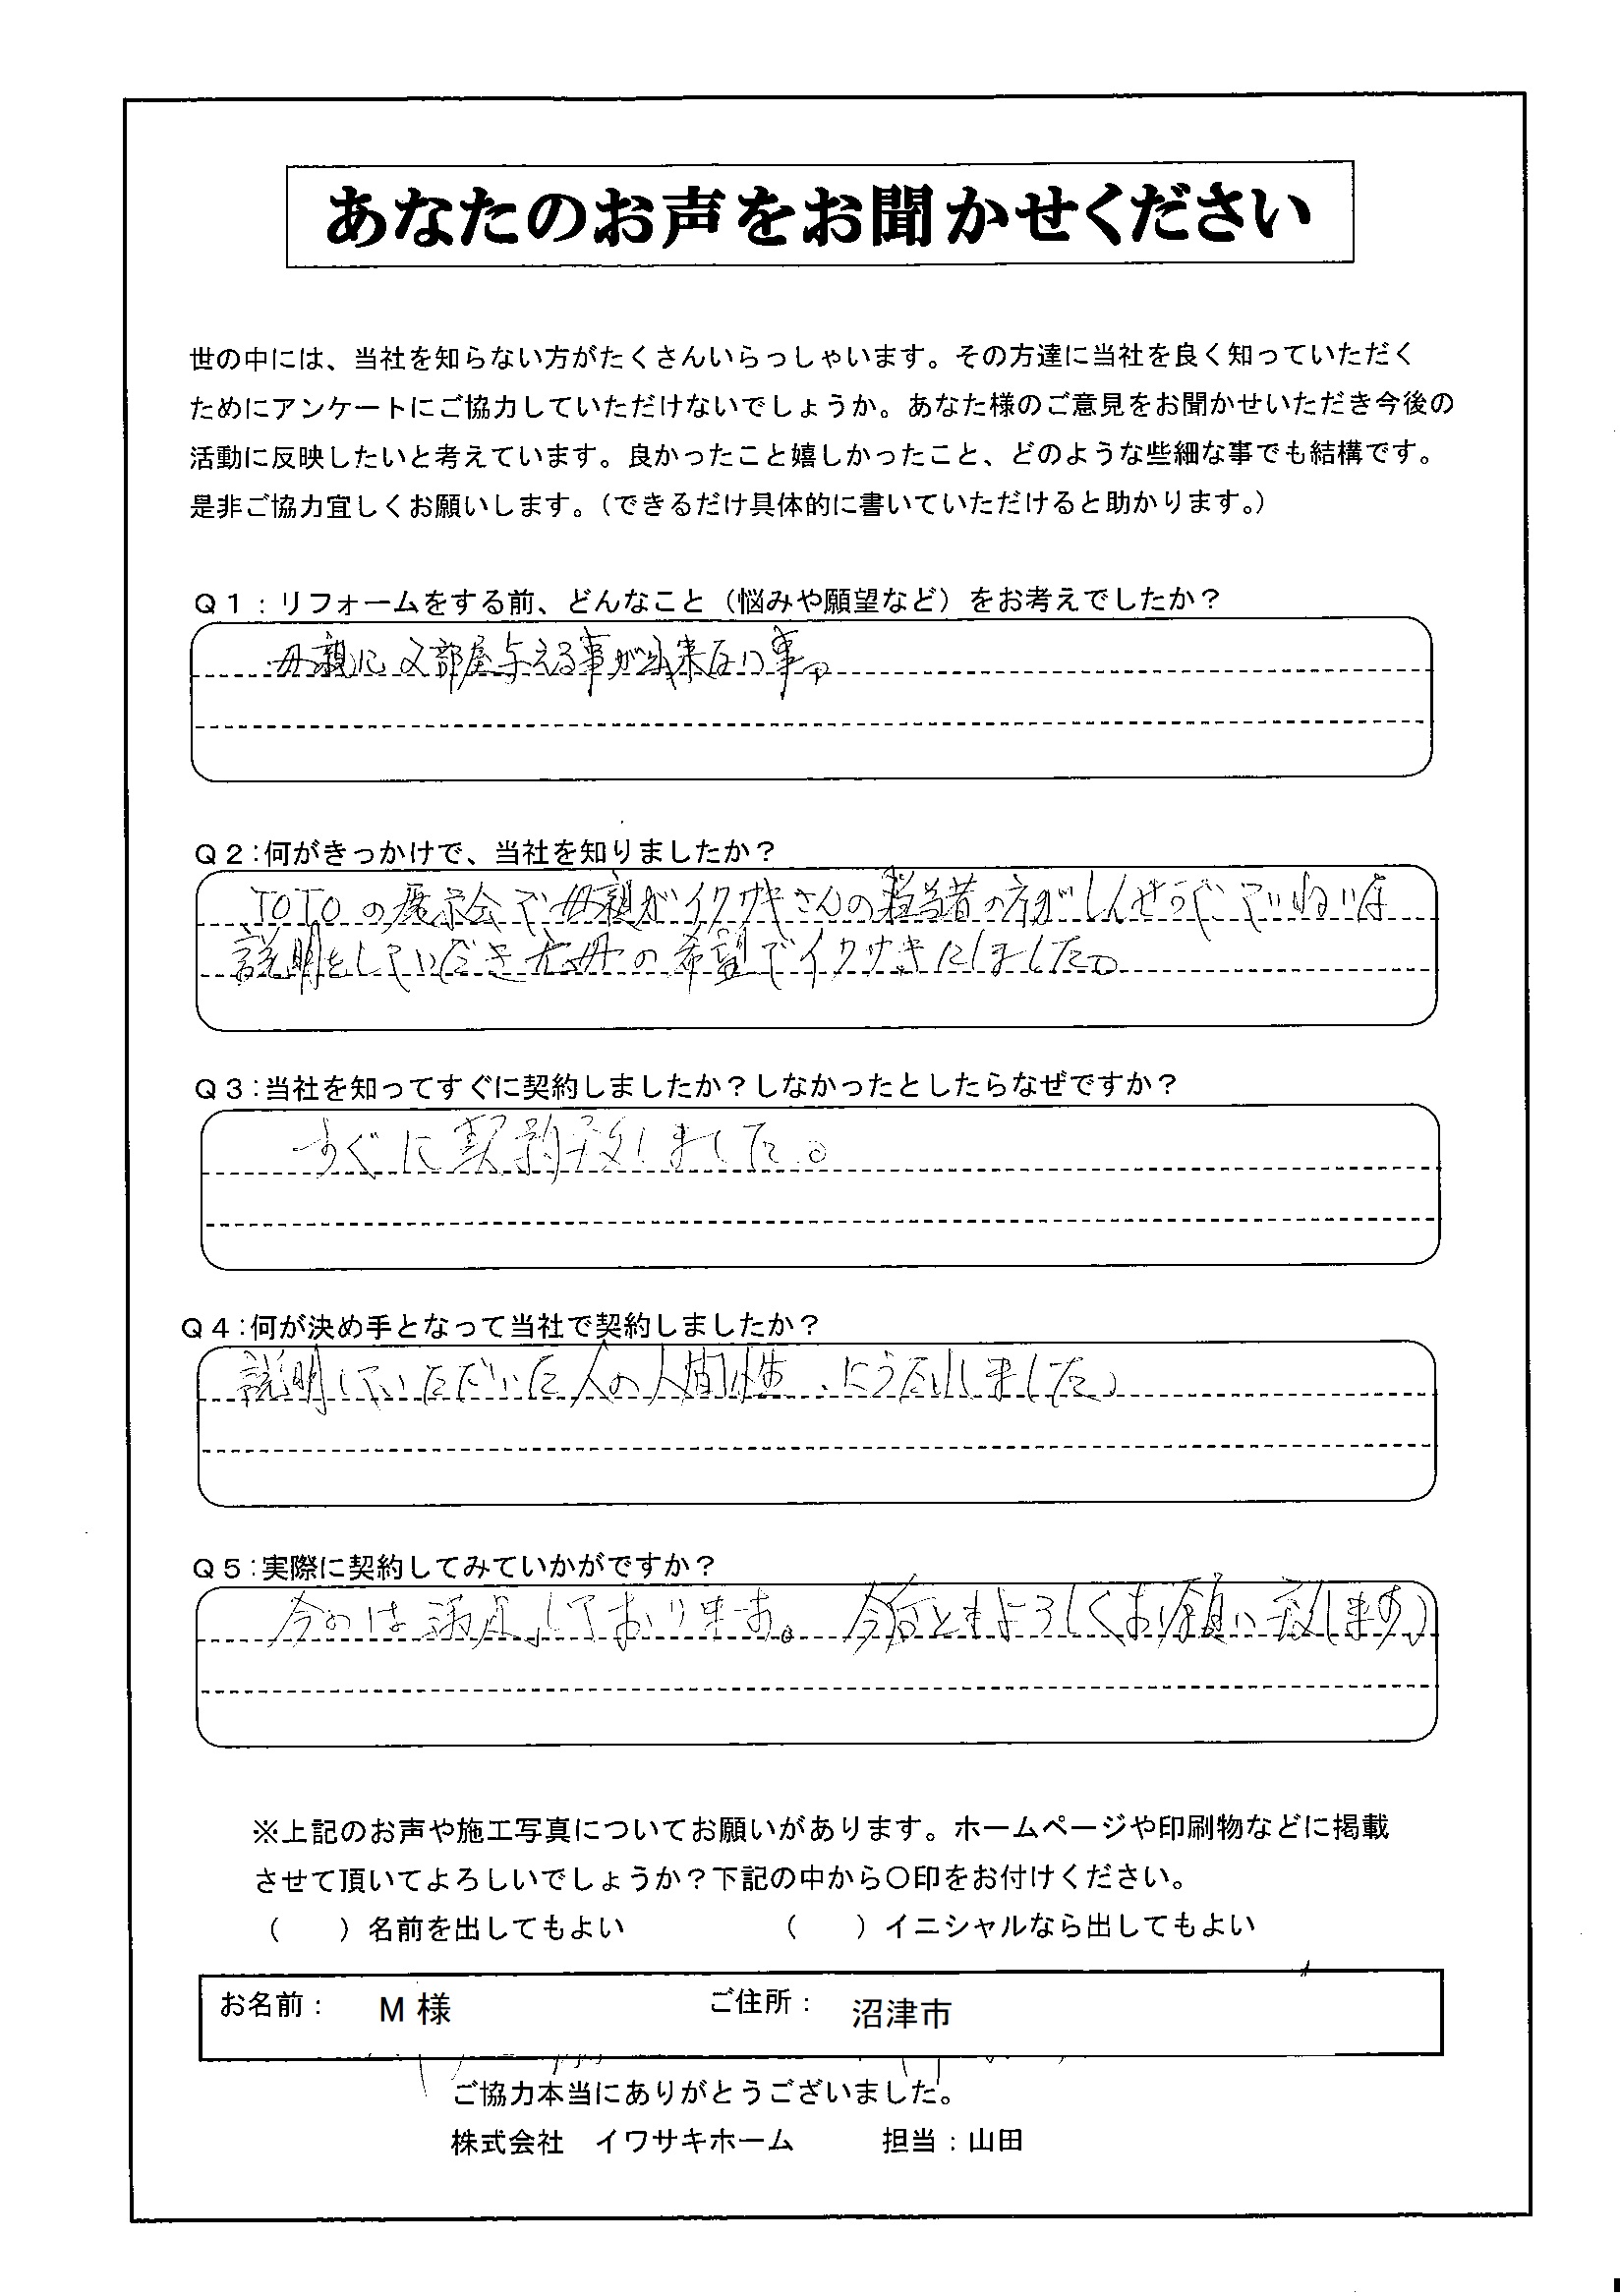 あなたのお声をお聞かせください
世の中には、当社を知らない方がたくさんいらっしゃいます。その方達に当社を良く知っていただく
ためにアンケートにご協力していただけないでしょうか。あなた様のご意見をお聞かせいただき今後の
活動に反映したいと考えています。良かったこと嬉しかったこと、どのような些細な事でも結構です。
是非ご協力宜しくお願いします。（できるだけ具体的に書いていただけると助かります。）
Q1：リフォームをする前、どんなこと（悩みや願望など）をお考えでしたか？
母親に 部屋与える事が出来ない事。
Q2：何がきっかけで、当社を知りましたか？
TOTOの展示会で母親がイワサキさんの担当者の方がしんせつでていねいな
説明をしていただき 母の希望でイワサキにしました。
Q3：当社を知ってすぐに契約しましたか？しなかったとしたらなぜですか？
すぐに契約致しました。
Q4：何が決め手となって当社で契約しましたか？
説明していただいた人の人間性、 しました。
Q5：実際に契約してみていかがですか？
満足しております。今后ともよろしくお願い致します。
※上記のお声や施工写真についてお願いがあります。ホームページや印刷物などに掲載
させて頂いてよろしいでしょうか？下記の中から〇印をお付けください。
（　　）名前を出してもよい　　　　　（　　）イニシャルなら出してもよい
お名前：　M 様　　　　ご住所：　沼津市
ご協力本当にありがとうございました。
株式会社　イワサキホーム　　　担当：山田